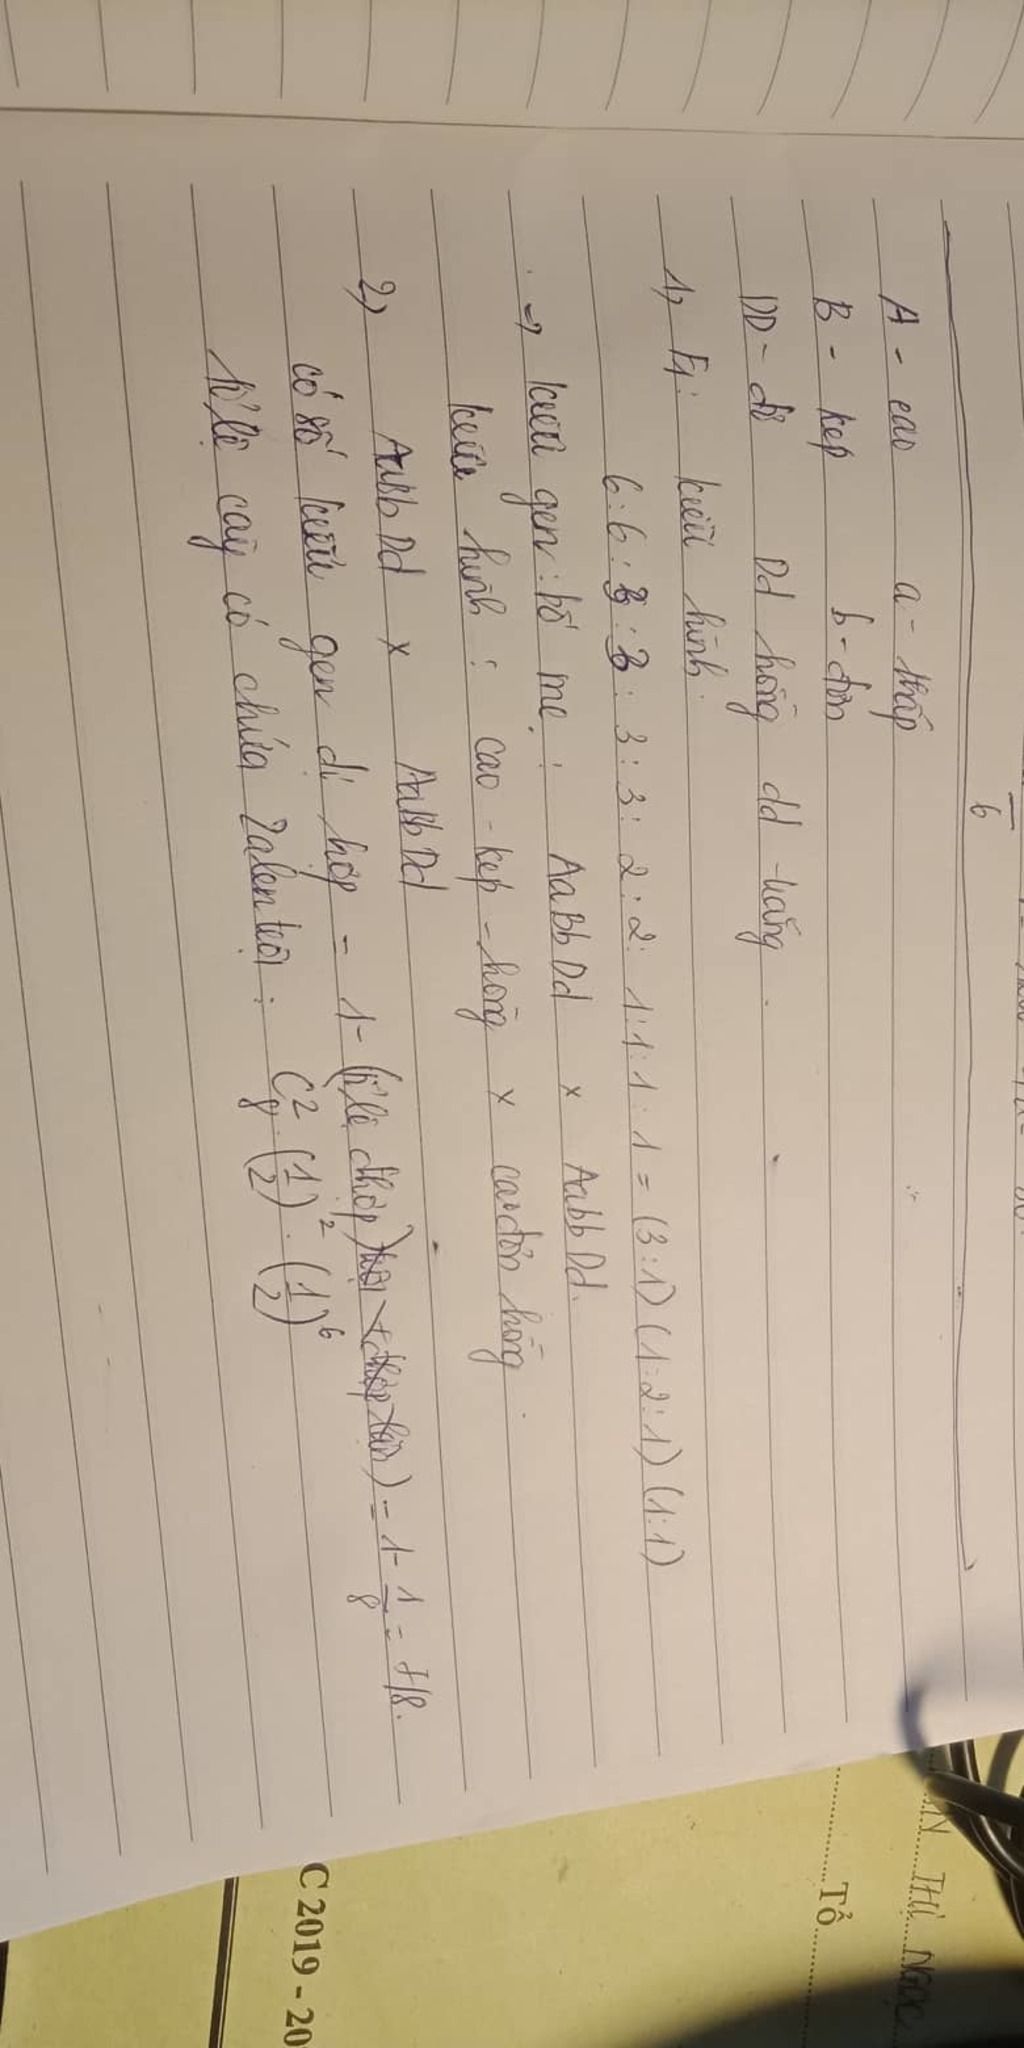 6
A - cao a - thấp
B - kép b - đơn
DD - đỏ Dd hồng dd - trắng
1, F1: kiểu hình:
6:6:3:3:3:3:2:2:1:1:1:1 = (3:1)(1:2:1)(1:1)
=> kiểu gen: bố mẹ: AaBbDd x AabbDd.
kiểu hình: cao - kép - hồng x cao đơn hồng
2, AaBbDd x AaBbDd
có số kiểu gen dị hợp = 1 - (tỉ lệ đhợp) = 1 - 1/8 = 7/8.
tỉ lệ cây có chứa 2 alen trội: C²₈ . (1/2)² . (1/2)⁶
Thị Ngọc
Tổ
C 2019 - 20